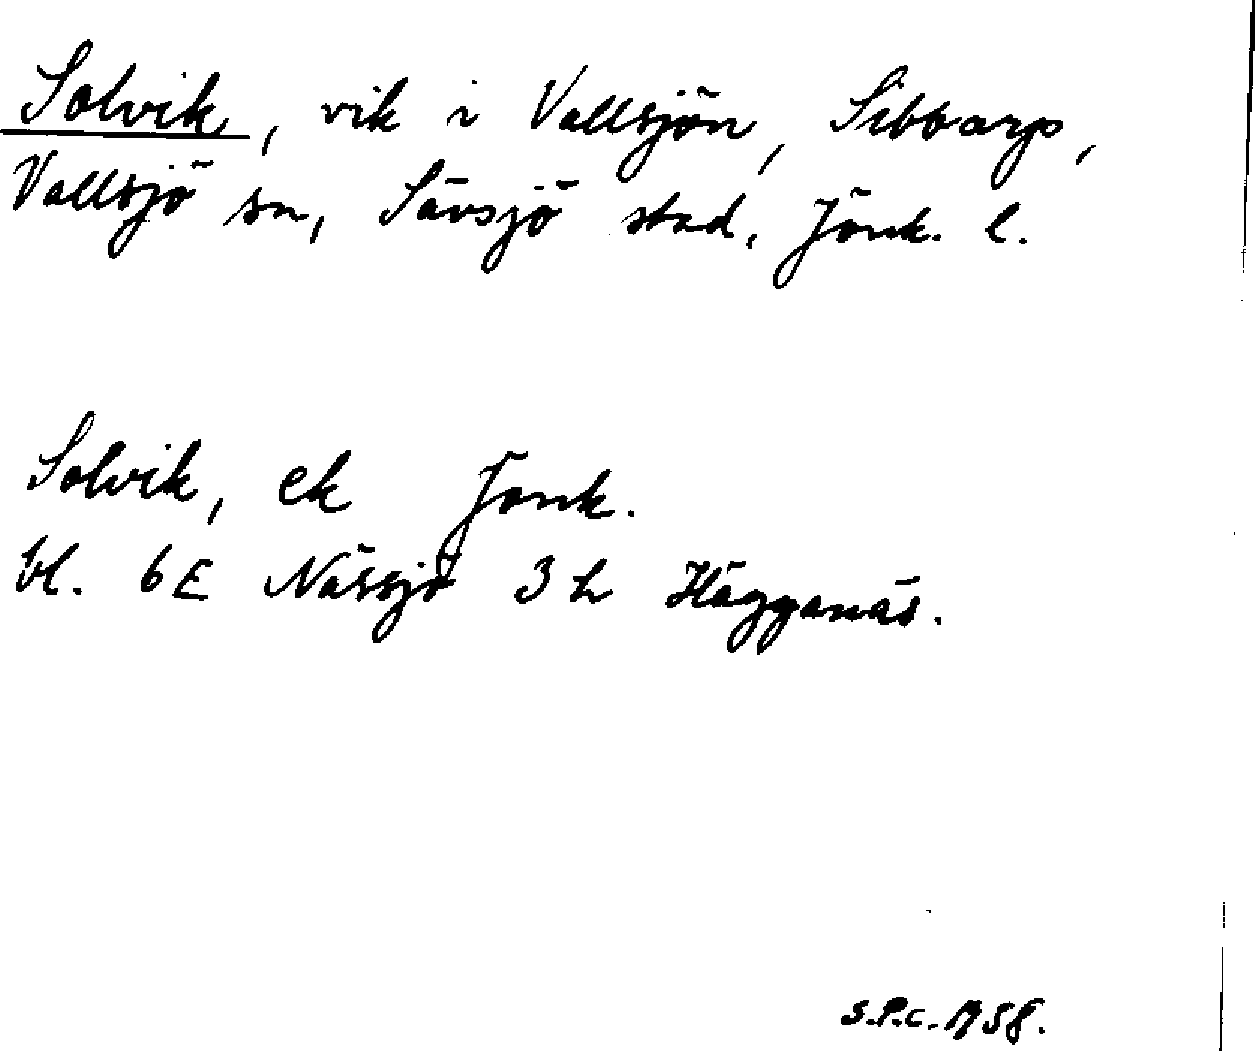 Solvik, vik i Vallsjön, Sibbarp,
Vallsjö sn, Sävsjö stad, Jönk. l.
Solvik, ek Jönk.
bl. 6E Nässjö 3 h Hägganäs.
S.P.C. 1958.